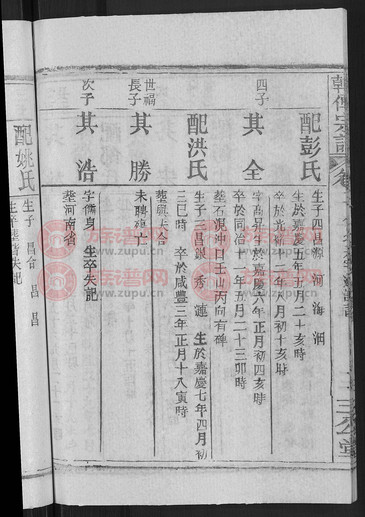 配彭氏
生子四昌 河 海 泗
生於嘉慶五年五月二十亥時
卒於光緒 年 月初十亥時
四子
其全
字商 生於嘉慶六年正月初四亥時
卒於同治十 年五月二十三卯時
塟石泥沖口壬山丙向有碑
配洪氏
生子三昌銀 秀 漣 生於嘉慶七年四月初
三巳時 卒於咸豐三年正月十八寅時
塟與夫合
世福
長子
其勝
未聘殤亡
次子
其浩
字儒身 生卒失記
塟河南省
配姚氏
生子 昌命 昌昌
生卒塟皆失記
族譜网
www.zupu.cn